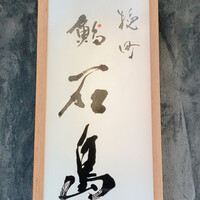 麹町
鮨
石島